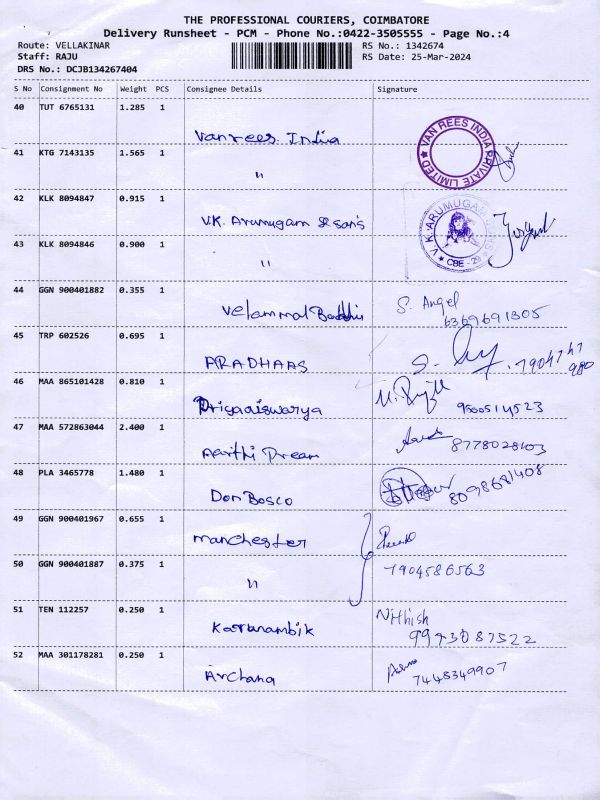 THE PROFESSIONAL COURIERS, COIMBATORE
Delivery Runsheet - PCM - Phone No.:0422-3505555 - Page No.:4
Route: VELLAKINAR RS No.: 1342674
Staff: RAJU RS Date: 25-Mar-2024
DRS No.: DCJB134267404
S No Consignment No Weight PCS Consignee Details Signature
40 TUT 6765131 1.285 1
Vanrees India
VAN REES INDIA PRIVATE LIMITED
41 KTG 7143135 1.565 1
"
42 KLK 8094847 0.915 1
V.K. Arumugam & son's
V.K. ARUMUGAM
CBE - 29
43 KLK 8094846 0.900 1
"
44 GGN 900401882 0.355 1
Velammal S. Angel
6369691305
45 TRP 602526 0.695 1
ARADHAAS S.
46 MAA 865101428 0.810 1
Prigaaiswarya 9500514523
47 MAA 572863044 2.400 1
Aarthi Dream 8778028103
48 PLA 3465778 1.480 1
Don Bosco 8098681408
49 GGN 900401967 0.655 1
Manchester
50 GGN 900401887 0.375 1
" 7904586563
51 TEN 112257 0.250 1
Karunambik Nithish
9943087522
52 MAA 301178281 0.250 1
Archana 7448349907